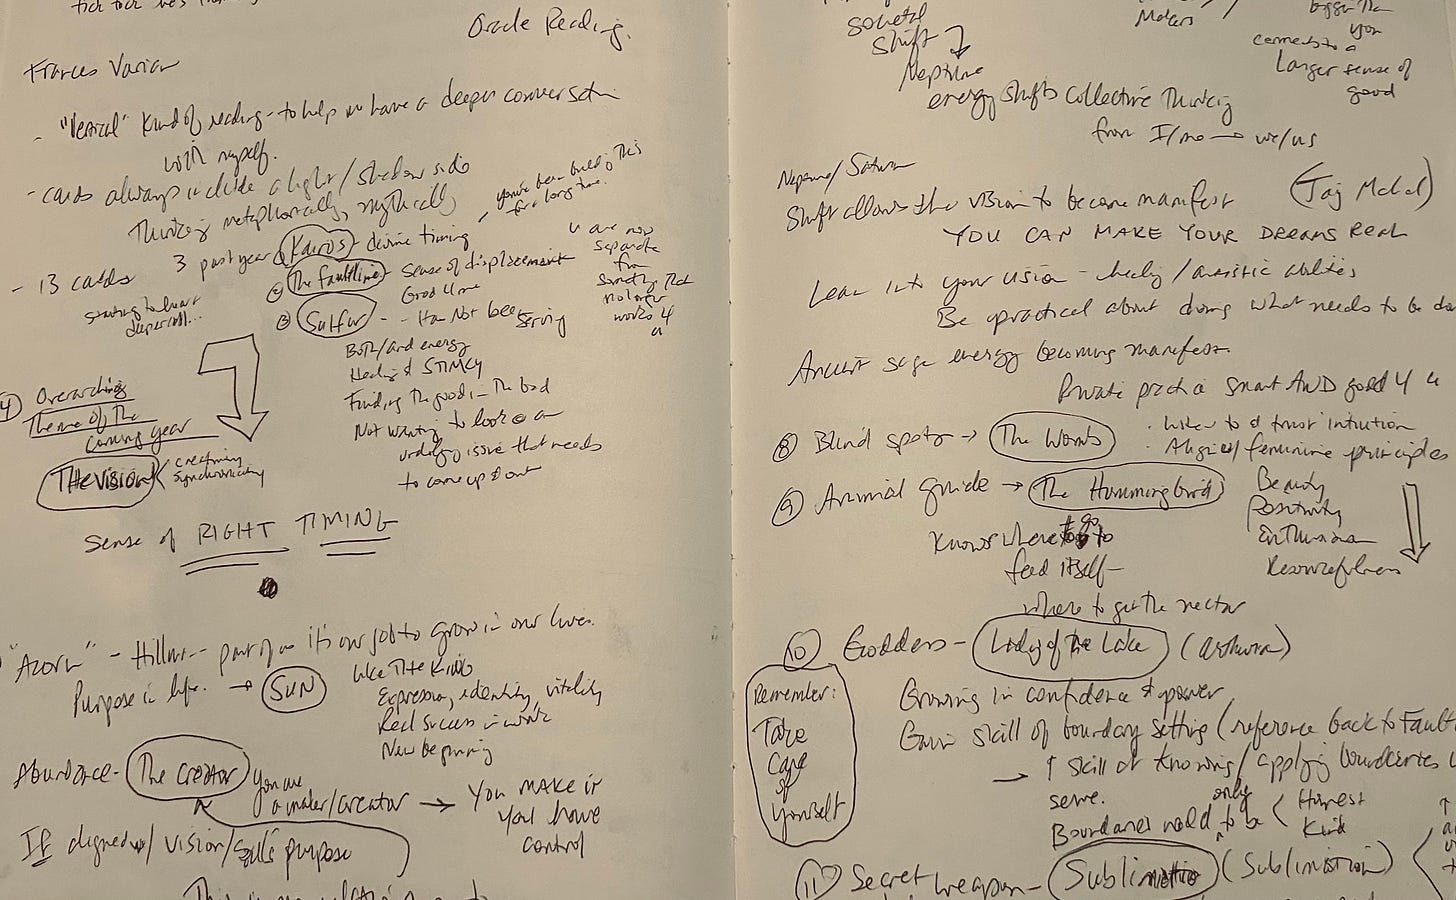 Oracle Reading.
Frances Varian
- "Vertical" kind of reading - to help me have a deeper conversation
with myself.
- cards always include a light/shadow side
Thinking metaphorically, mythically
- 13 cards
3 past year
Kairos - divine timing
you've been building this
for a long time.
② The Faultline - sense of displacement
Good 4 me
u are now
separate
from
something that
no longer
works 4
u
③ Sulfur - Has not been
serving
starting to hear
deeper
Both/and energy
Healing & STINKY
Finding the good in the bad
Not wanting to look @ an
underlying issue that needs
to come up & out
④ Overarching
Theme of the
coming year
THE VISION
creativity
synchronicity
sense of RIGHT TIMING
"Acorn" - Hillman - part of us it's our job to grow in our lives.
Purpose in life. → SUN
like THE KING
Expression, identity, vitality
Real success in work
New beginning
Abundance - The Creator
You are
a maker/creator → You make it
you have
control
If aligned w/ vision/soul's purpose
societal
shift
Neptune
energy shifts collective thinking
from I/me → we/us
Makers
bigger than
you
connects to a
larger sense of
good
Neptune/Saturn
Shift allows the vision to become manifest (Taj Mahal)
YOU CAN MAKE YOUR DREAMS REAL
Lean into your vision - healing/artistic abilities
Be practical about doing what needs to be
Ancient sage energy becoming manifest.
Private practice smart AND good 4 u
⑧ Blind spots → The Womb
· Listen to & trust intuition
· Align w/ feminine principles
⑨ Animal guide → The Hummingbird
Beauty
Positivity
Enthusiasm
Resourcefulness
Knows where to go to
feed itself -
where to get the nectar
⑩ Goddess - Lady of the Lake (Arthurian)
Remember:
Take
Care
of
Yourself
Growing in confidence & power
Gain skill of boundary setting (reference back to Fault
→ ↑ skill of knowing/applying boundaries
serve.
Boundaries only need to be < Honest
Kind
⑪ Secret weapon - Sublimatio (Sublimation)